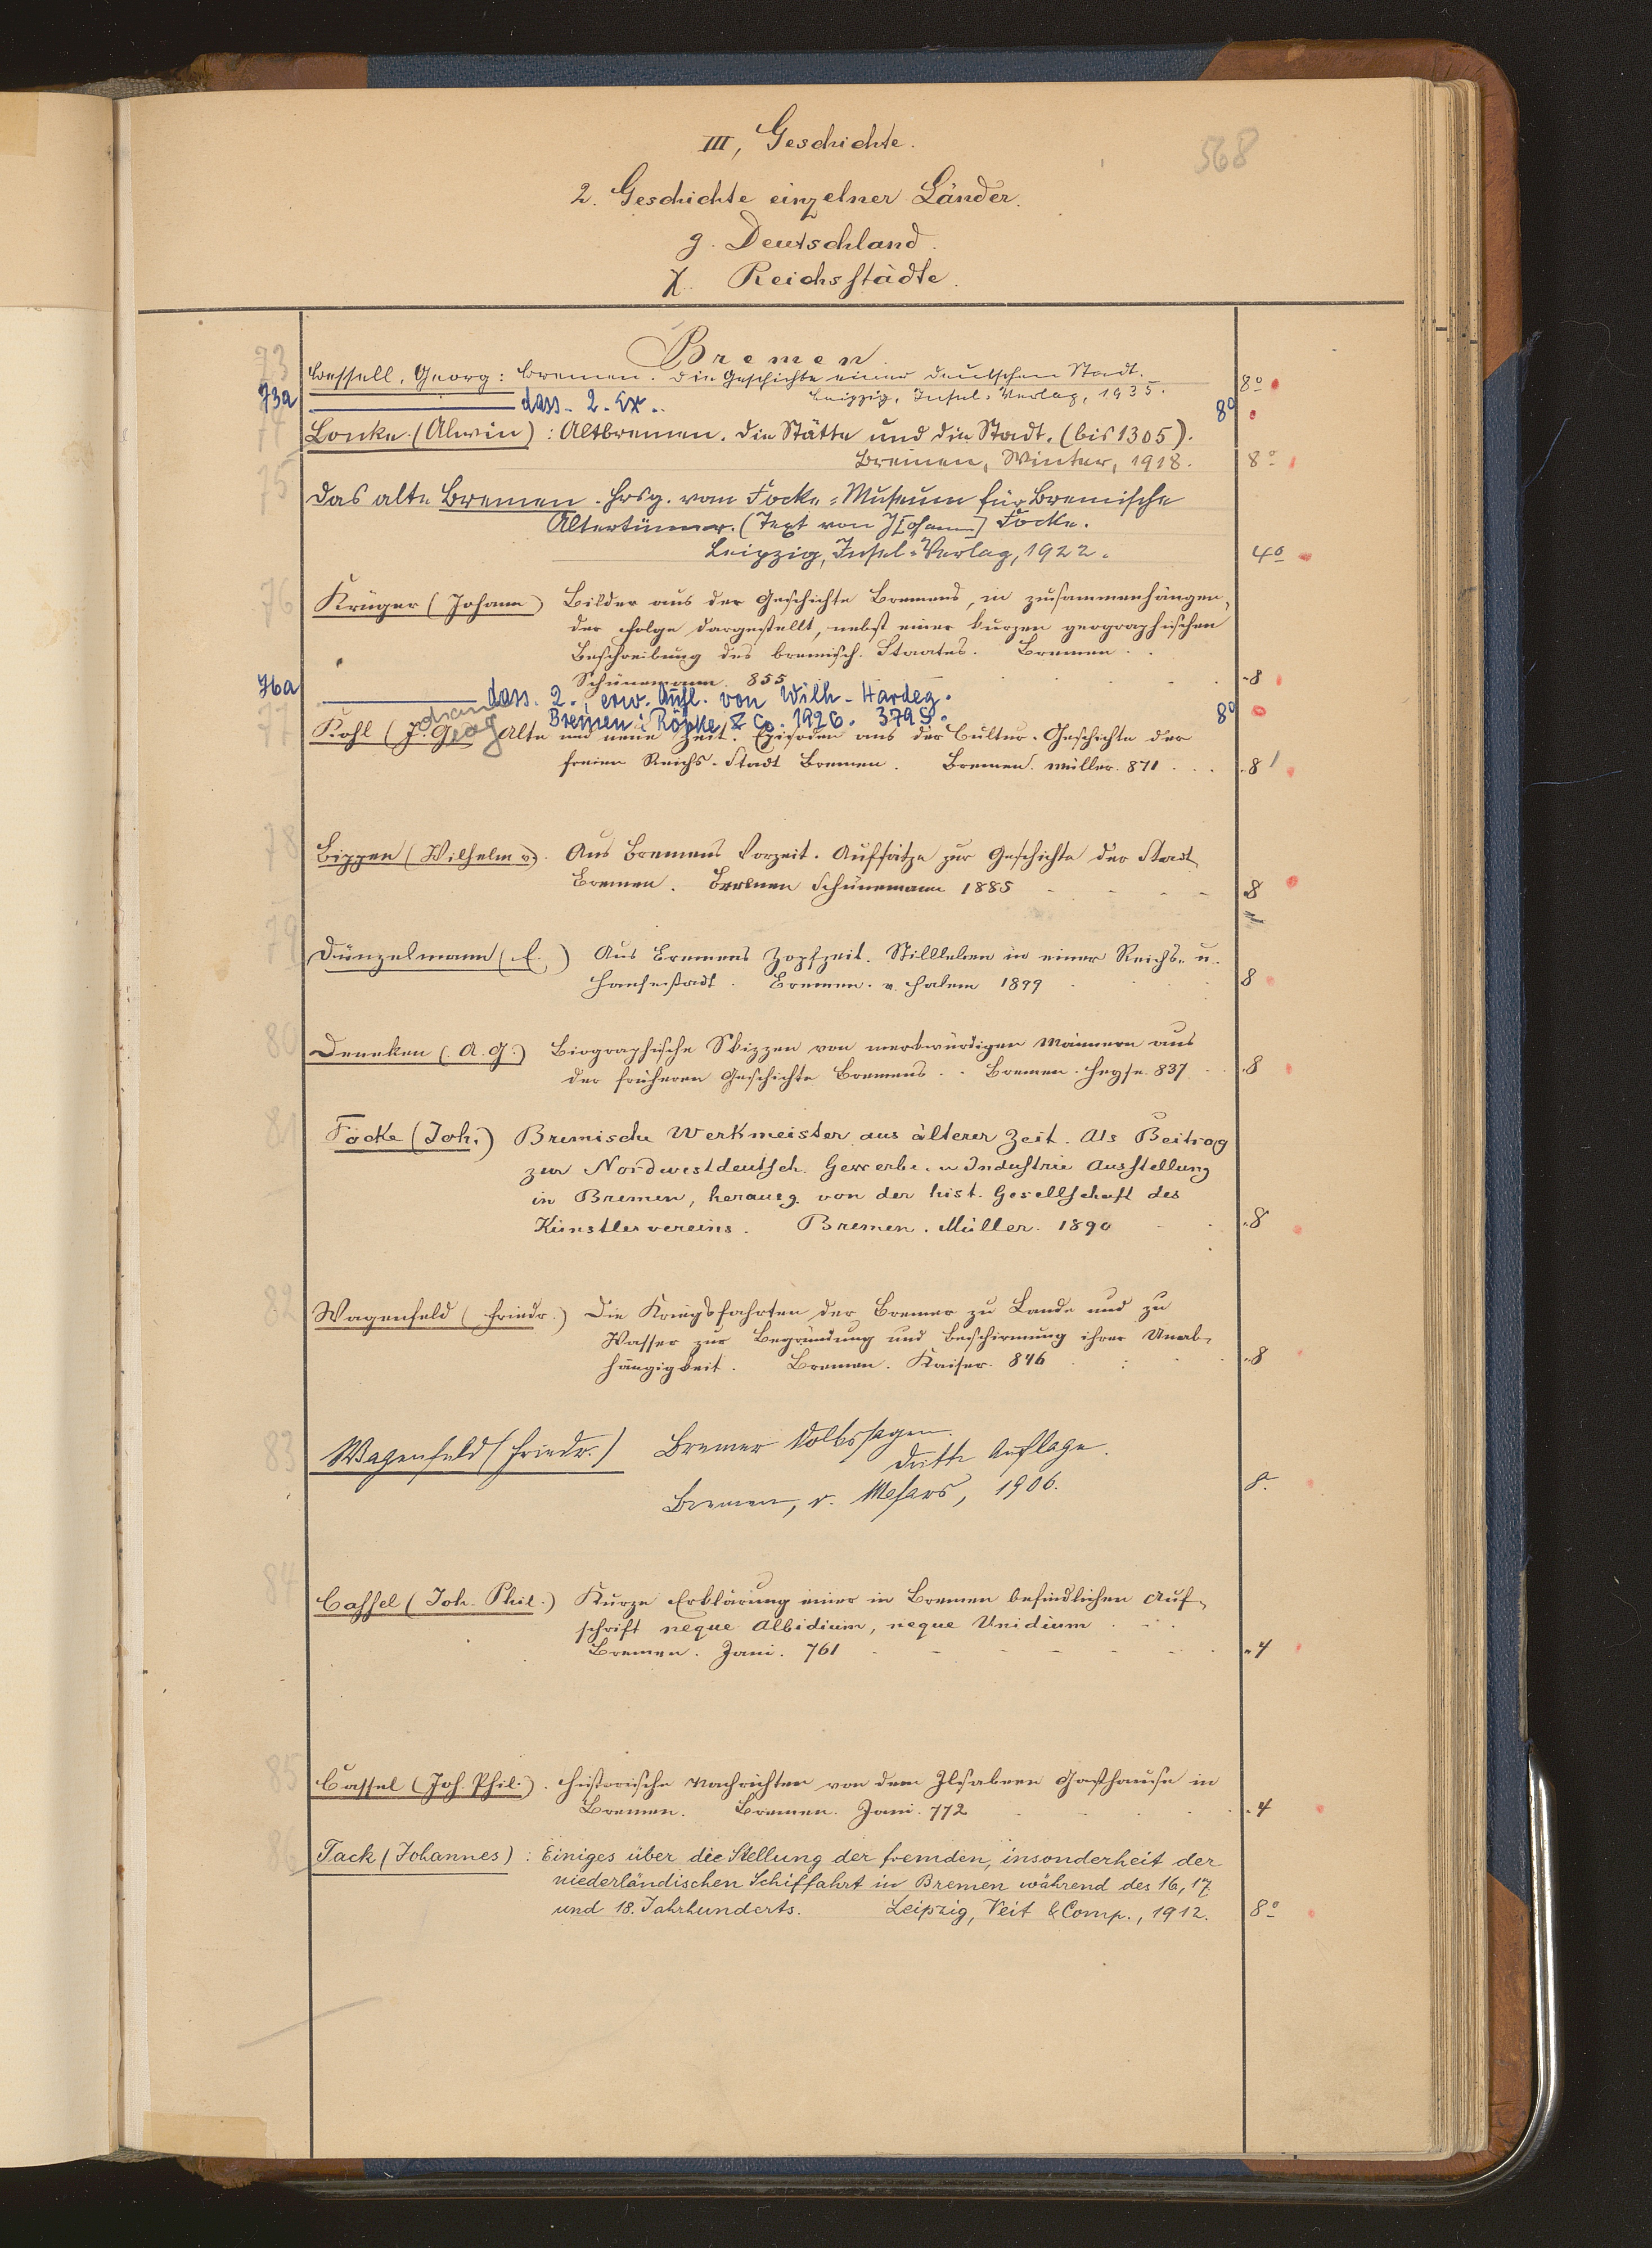 568
III, Geschichte.
2. Geschichte einzelner Länder.
g. Deutschland.
χ. Reichsstädte.
Bremen.
73 Bessell, Georg: Bremen. Die Geschichte einer deutschen Stadt.
Leipzig, Insel-Verlag, 1935. 8º
73a dass. 2. Ex. 8º
Lonke (Alwin): Altbremen. Die Stätte und die Stadt. (bis 1305).
Bremen, Winter, 1918. 8º
75 Das alte Bremen. Hrsg. vom Focke-Museum für Bremische
Altertümer. (Text von J[ohann] Focke.
Leipzig, Insel-Verlag, 1922. 4º
76 Krüger (Johann) Bilder aus der Geschichte Bremens, in zusammenhängen-
der Folge dargestellt, nebst einer kurzen geographischen
Beschreibung des bremisch. Staates. Bremen.
Schünemann. 855 8
76a dass. 2., erw. Aufl. von Wilh. Hardeg.
Bremen: Röpke & Co. 1926. 379 S. 8º
77 Kohl (J. Georg Alte und neue Zeit. Episoden aus der Cultur-Geschichte der
freien Reichs-Stadt Bremen. Bremen. Müller. 871 8
78 Bippen (Wilhelm v.) Aus Bremens Vorzeit. Aufsätze zur Geschichte der Stadt
Bremen. Bremen Schünemann 1885 8
79 Dünzelmann (E.) Aus Bremens Zopfzeit. Stillleben in einer Reichs- u.
Hansestadt. Bremen. v. Halem 1899 8
80 Deneken (A. G.) Biographische Skizzen von merkwürdigen Männern aus
der früheren Geschichte Bremens. Bremen. Heyse. 837 8
81 Focke (Joh.) Bremische Werkmeister aus älterer Zeit. Als Beitrag
zur Nordwestdeutsch. Gewerbe- u Industrie Ausstellung
in Bremen, herausg. von der hist. Gesellschaft des
Künstlervereins. Bremen. Müller. 1890 8
82 Wagenfeld (Friedr.) Die Kriegsfahrten der Bremer zu Lande und zu
Wasser zur Begründung und Beschirmung ihrer Unab-
hängigkeit. Bremen. Kaiser. 846 8
83 Wagenfeld (Friedr.) Bremer Volkssagen.
Dritte Auflage.
Bremen, v. 1906. 8.
84 Cassel (Joh. Phil.) Kurze Erklärung einer in Bremen befindlichen Auf-
schrift neque Albidium, neque Unidium
Bremen. Jani. 761 4
85 Cassel (Joh. Phil.). Historische Nachrichten von dem Ilsabeen Gasthause in
Bremen. Bremen. Jani. 772 4
86 Tack (Johannes): Einiges über die Stellung der fremden, insonderheit der
niederländischen Schiffahrt in Bremen während des 16, 17
und 18. Jahrhunderts. Leipzig, Veit & Comp., 1912. 8º